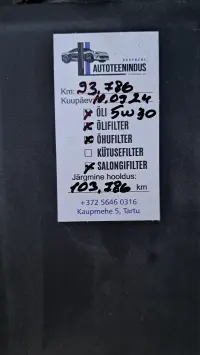 AUTOTEENINDUS
Km: 93,786
Kuupäev 10.07.24
ÕLI 5W30
ÕLIFILTER
ÕHUFILTER
KÜTUSEFILTER
SALONGIFILTER
Järgmine hooldus:
103,786 km
+372 5646 0316
Kaupmehe 5, Tartu